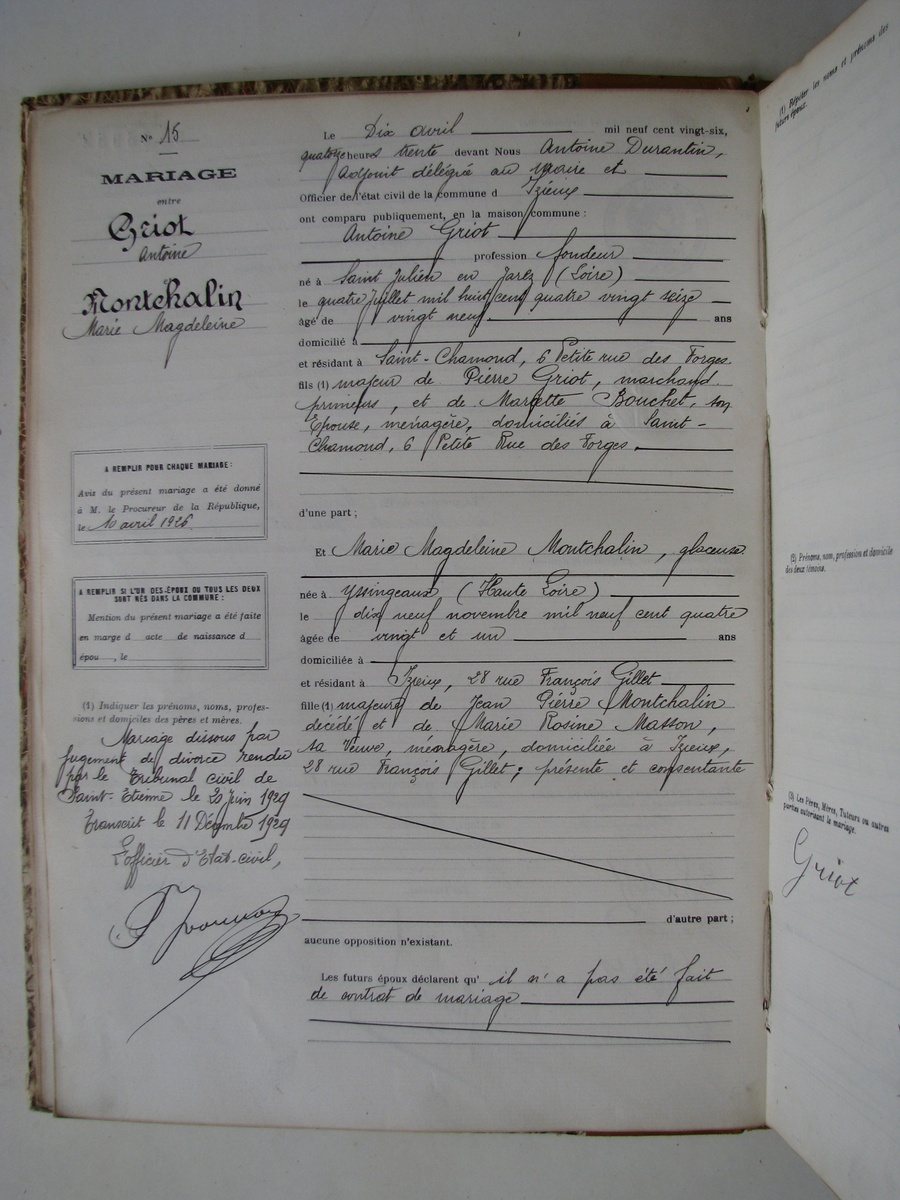 N° 15
MARIAGE
entre
Griot
Antoine
Montchalin
Marie Magdeleine
A REMPLIR POUR CHAQUE MARIAGE :
Avis du présent mariage a été donné
à M. le Procureur de la République,
le 10 avril 1926
A REMPLIR SI L'UN DES ÉPOUX OU TOUS LES DEUX
SONT NÉS DANS LA COMMUNE :
Mention du présent mariage a été faite
en marge d acte de naissance d
épou , le
(1) Indiquer les prénoms, noms, profes-
sions et domiciles des pères et mères.
Mariage dissous par
jugement de divorce rendu
par le Tribunal civil de
Saint-Etienne le 20 Juin 1929
Transcrit le 11 Décembre 1929
L'officier d'Etat-civil,
Le Dix avril mil neuf cent vingt-six,
quatorze heures trente devant Nous Antoine Durantin,
Adjoint délégué au maire et
Officier de l'état civil de la commune d Izieux
ont comparu publiquement, en la maison commune :
Antoine Griot
profession fondeur
né à Saint Julien en Jarez (Loire)
le quatre Juillet mil huit cent quatre vingt seize
âgé de vingt neuf ans
domicilié à
et résidant à Saint-Chamond, 6 Petite rue des Forges
fils (1) majeur de Pierre Griot, marchand
primeurs, et de Mariette Bouchet, son
Epouse, ménagère, domiciliés à Saint-
Chamond, 6 Petite Rue des Forges.
d'une part ;
Et Marie Magdeleine Montchalin, glaceuse
née à Yssingeaux (Haute Loire)
le dix neuf novembre mil neuf cent quatre
âgée de vingt et un ans
domiciliée à
et résidant à Izieux, 28 rue François Gillet
fille (1) majeure de Jean Pierre Montchalin
décédé et de Marie Rosine Masson,
sa Veuve, ménagère, domiciliée à Izieux,
28 rue François Gillet ; présente et consentante
d'autre part ;
aucune opposition n'existant.
Les futurs époux déclarent qu' il n'a pas été fait
de contrat de mariage
(1) Répéter les noms et prénoms des
futurs époux.
(2) Prénoms, nom, profession et domicile
des deux témoins.
(3) Les Pères, Mères, Tuteurs ou autres
parties autorisant le mariage.
Griot